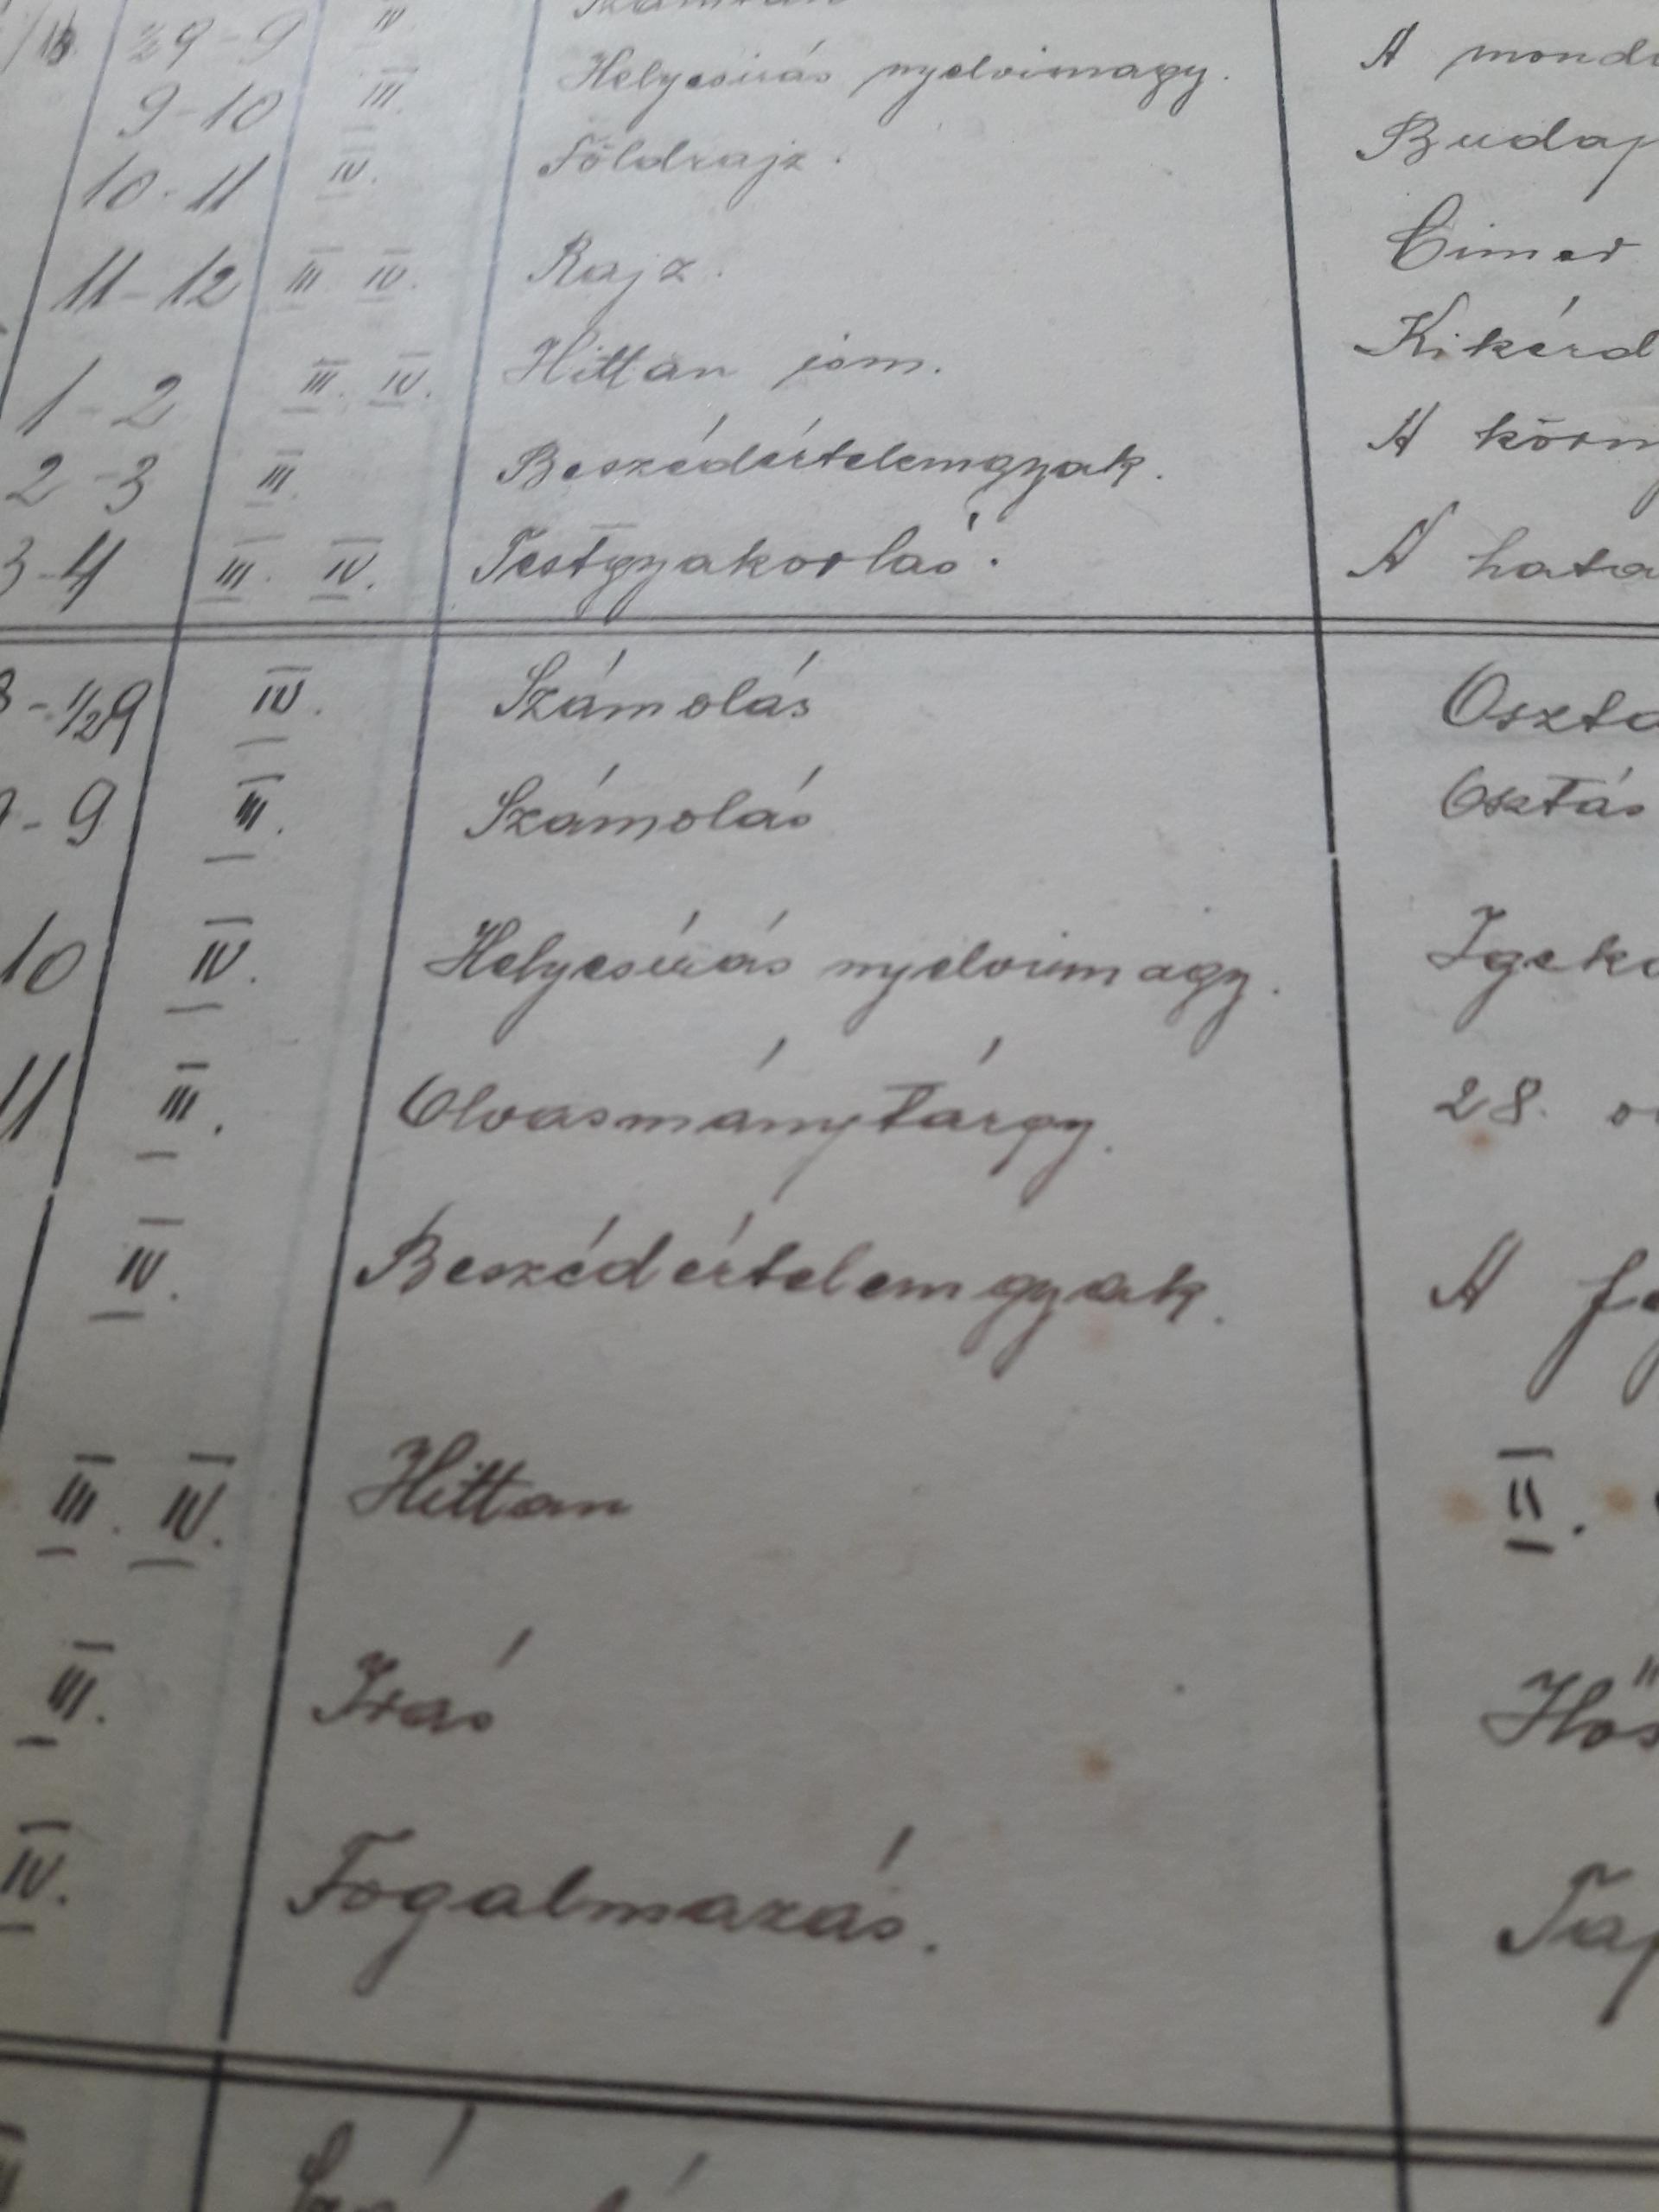 ½9-9 IV.
9-10 III. Helyesírás nyelvimagy. A mond
10-11 IV. Földrajz. Budap
11-12 III. IV. Rajz. Címer
1-2 III. IV. Hittan ism. Kikérd
2-3 III. Beszédértelemgyak. A körn
3-4 III. IV. Testgyakorlás. A hata
8-½9 IV. Számolás Oszta
9-9 III. Számolás Osztás
10 IV. Helyesírás nyelvimagy. Igekö
11 III. Olvasmánytárgy. 28. o
IV. Beszédértelemgyak. A fo
III. IV. Hittan II.
III. Irás Hős
IV. Fogalmazás. Tap